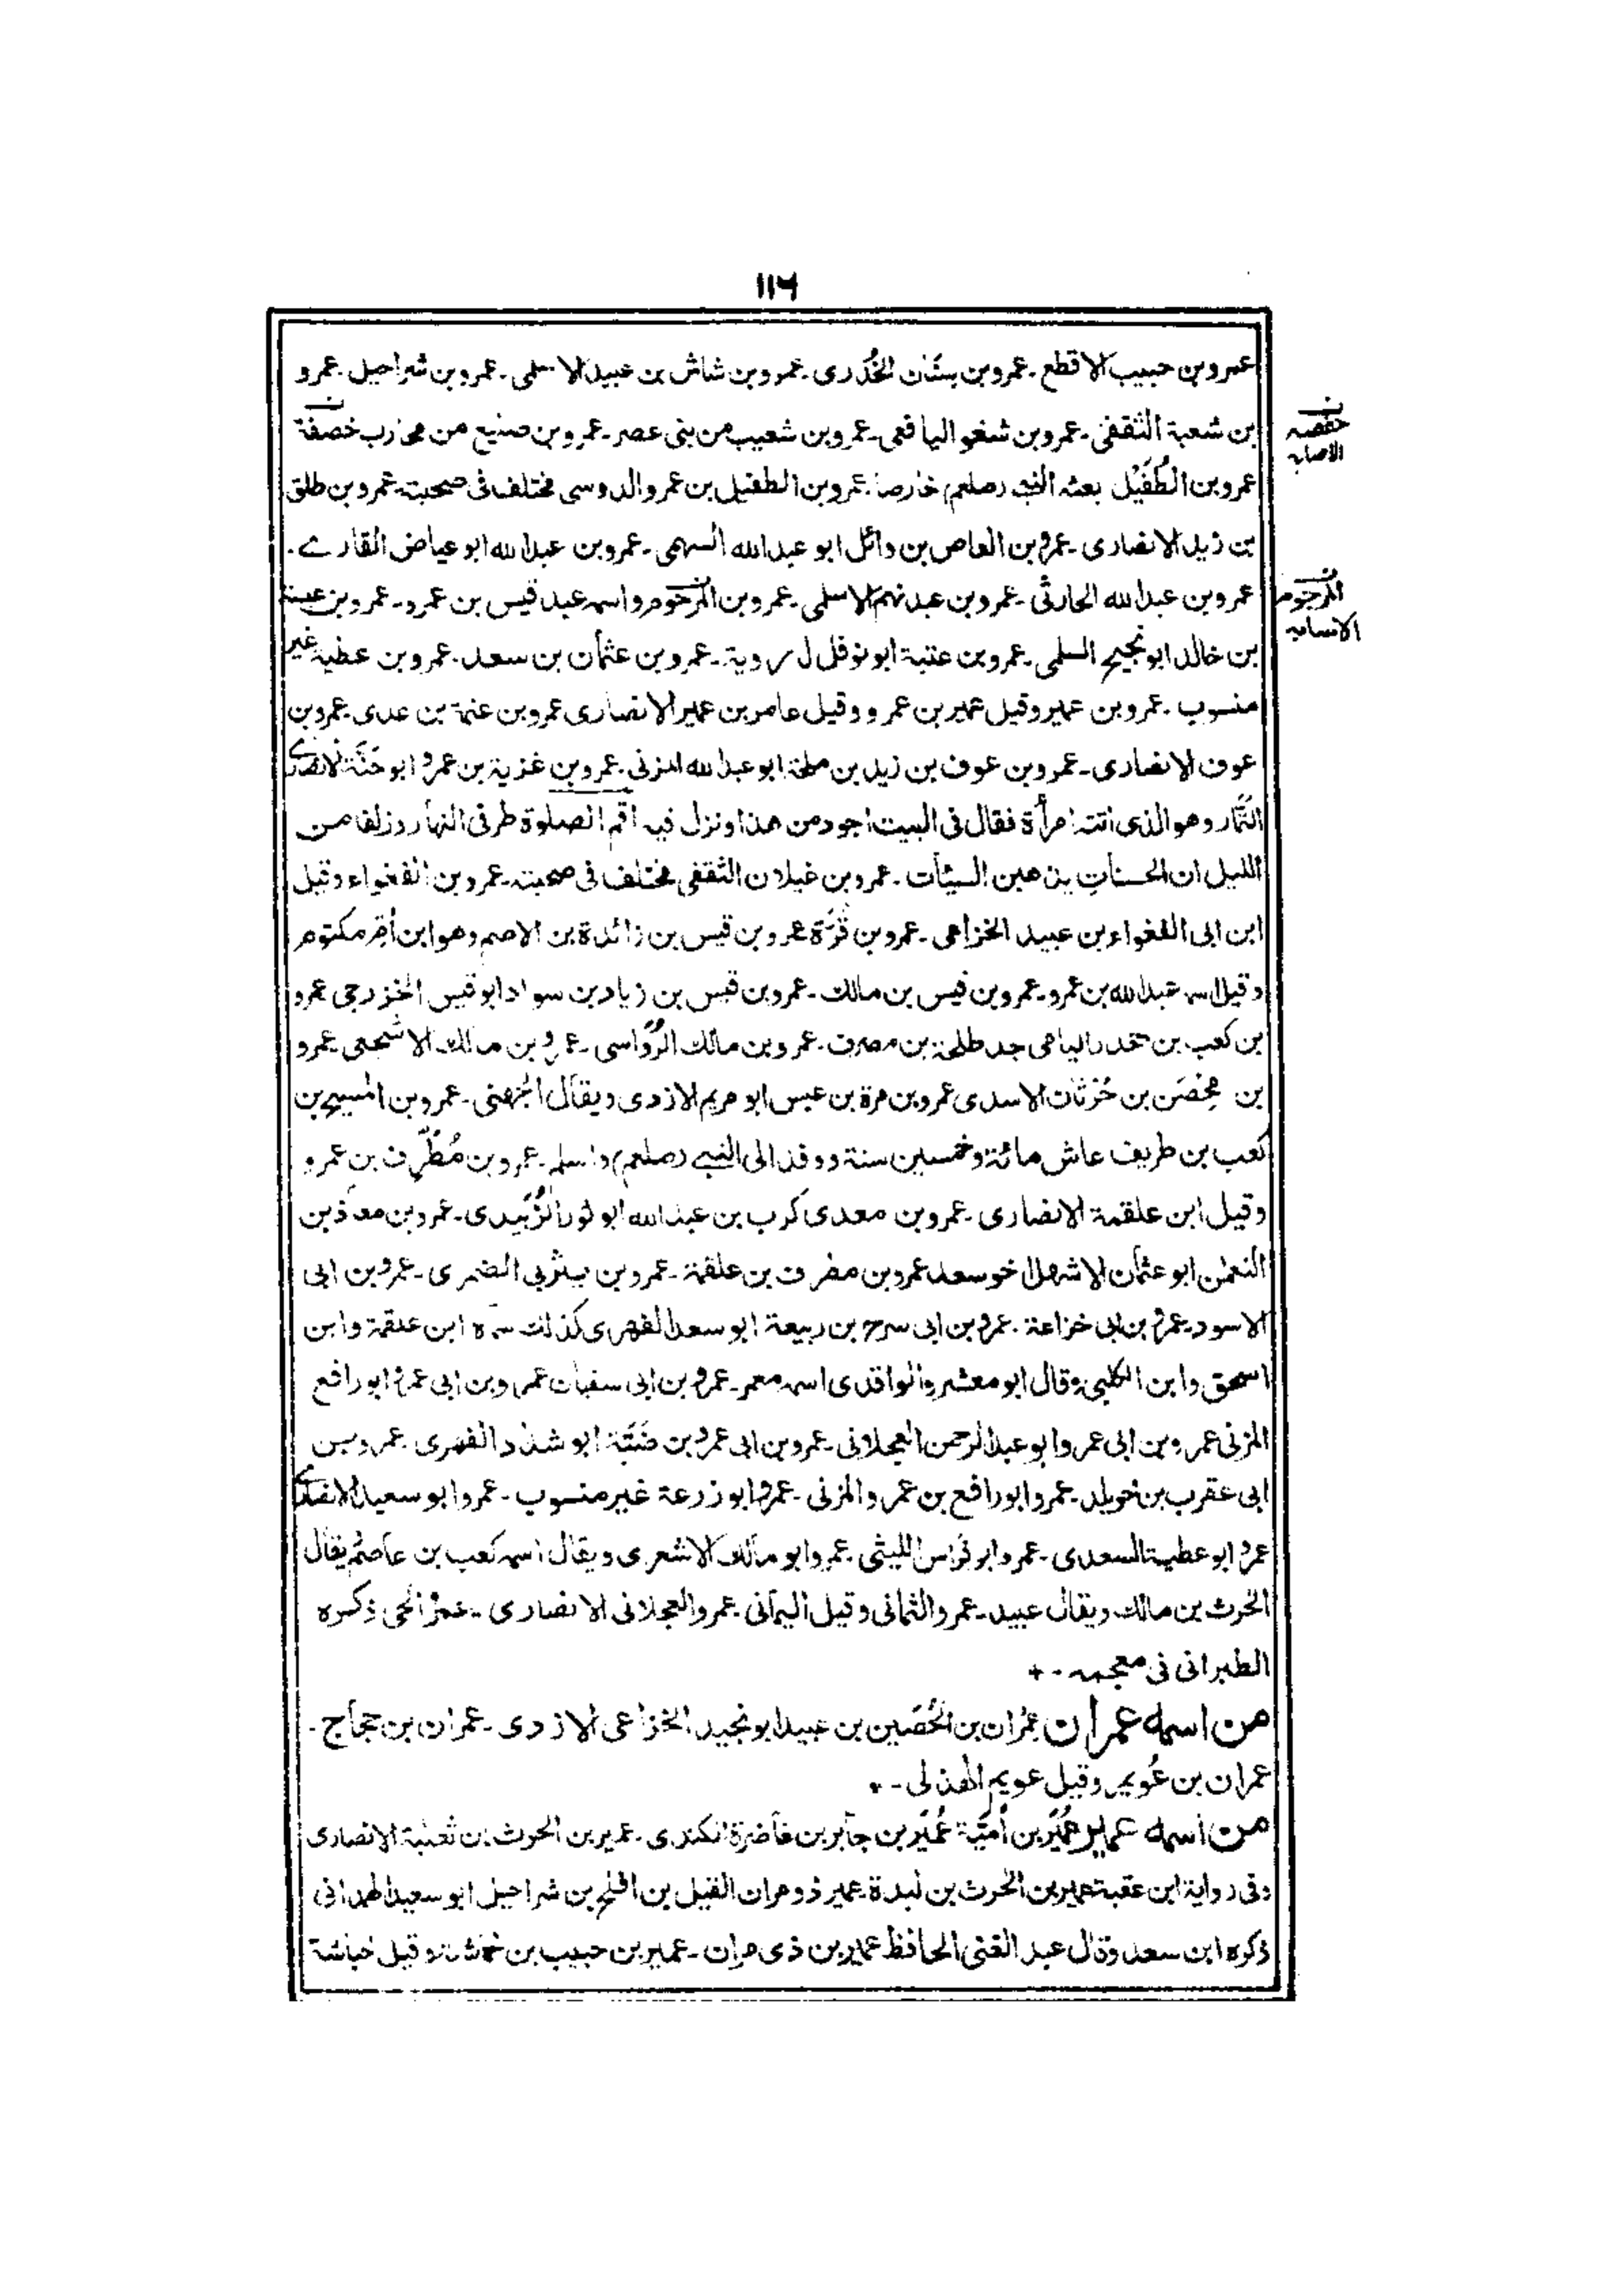 ١١٦
عمرو بن حبيب الاقطع ـ عمرو بن سنان الخُدرى ـ عمرو بن شاش بن عبيد الاسلمى ـ عمرو بن شراحيل ـ عمرو
بن شعبة الثقفى ـ عمرو بن شغو اليافعى ـ عمرو بن شعيب من بنى عصر ـ عمرو بن صنيع من محارب خصفة
حفصه
الاصابه
عمرو بن الطُفَيْل بعثه النبى (صلعم) خارصا ـ عمرو بن الطفيل بن عمرو الدوسى مختلف فى صحبته ـ عمرو بن طلق
بن زيد الانصارى ـ عمرو بن العاص بن وائل ابو عبد الله السهمى ـ عمرو بن عبد الله ابو عياض القارے ـ
عمرو بن عبد الله الحارثى ـ عمرو بن عبد نهم الاسلمى ـ عمرو بن المرحوم واسمه عبد قيس بن عمرو ـ عمرو بن عبسة
المرجوم
بن خالد ابو نجيح السلمى ـ عمرو بن عتبة ابو نوفل له روية ـ عمرو بن عثمان بن سعد ـ عمرو بن عطية غير
منسوب ـ عمرو بن عمير وقيل عمير بن عمرو وقيل عامر بن عمير الانصارى عمرو بن عنمة بن عدى عمرو بن
عوف الانصارى ـ عمرو بن عوف بن زيد بن ملحة ابو عبد الله المزنى ـ عمرو بن غزية بن عمرو ابو حَنَّة الانصارے
التمَّار وهو الذى اتته امرأة فقال فى البيت اجود من هذا ونزل فيه اقم الصلوة طرفى النهار وزلفا من
الليل ان الحسناتِ يذهبن السيئات ـ عمرو بن غيلان الثقفى مختلف فى صحبته ـ عمرو بن الفغواء وقيل
ابن ابى الفغواء بن عبيد الخزاعى ـ عمرو بن قُرَّة عمرو بن قيس بن زائدة بن الاصم وهو ابن اُم مكتوم
وقيل اسمه عبد الله بن عمرو ـ عمرو بن قيس بن مالك ـ عمرو بن قيس بن زياد بن سواد ابو قيس الخزرجى عمرو
بن كعب بن جحدر اليامى جد طلحة بن مصرف ـ عمرو بن مالك الرُّوَاسى ـ عمرو بن مالك الاشجعى عمرو
بن مِحْصَن بن حُرْثان الاسدى عمرو بن مرة بن عبس ابو مريم الازدى ويقال الجُهنى ـ عمرو بن المسبح بن
كعب بن طريف عاش مائة وخمسين سنة ووفد الى النبے (صلعم) واسلم ـ عمرو بن مُطَرِّف بن عمرو
وقيل ابن علقمة الانصارى ـ عمرو بن معدى كرب بن عبد الله ابو ثور الزُّبَيدى ـ عمرو بن معاذ بن
النعمٰن ابو عثمان الاشهلى اخو سعد عمرو بن مطرف بن علقمة ـ عمرو بن يثربى الضمرى ـ عمرو بن ابى
الاسود ـ عمرو بن ابى خزاعة ـ عمرو بن ابى سرح بن ربيعة ابو سعد الفهرى كذلك سماه ابن علقمة وابن
اسحق وابن الكلبى وقال ابو معشر والواقدى اسمه معمر ـ عمرو بن ابى سفيان عمرو بن ابى عمرو ابو رافع
المزنى عمرو بن ابى عمرو ابو عبد الرحمن العجلانى ـ عمرو بن ابى عمرو بن ضَبَّة ابو شداد الفهرى عمرو بن
ابى عقرب بن خويلد ـ عمرو ابو رافع بن عمرو المزنى ـ عمرو ابو زرعة غير منسوب ـ عمرو ابو سعيد الانصارے
عمرو ابو عطية السعدى ـ عمرو ابو فراس الليثى ـ عمرو ابو مالك الاشعرى ويقال اسمه كعب بن عاصم ويقال
الحرث بن مالك ويقال عبيد ـ عمرو الثمالى وقيل اليمانى ـ عمرو العجلانى الانصارى ـ عمرو الجنى ذكره
الطبرانى فى معجمه ـ +
من اسمه عمران عِمْران بن الحُصَين بن عبيد ابو نجيد الخزاعى الازدى ـ عمران بن حجاج ـ
عمران بن عُويمر وقيل عويم الهذلى ـ +
من اسمه عمير عُمَيْر بن اُمَيَّة عُمَيْر بن جابر بن غاضرة الكندى ـ عمير بن الحرث بن ثعلبة الانصارى
وفى رواية ابن عقبة عمير بن الحرث بن لبدة عمير ذو مران القيل بن افلح بن شراحيل ابو سعيد الهمدانى
ذكره ابن سعد وقال عبد الغنى الحافظ عمير بن ذى مران ـ عمير بن حبيب بن خماشة وقيل خباشة